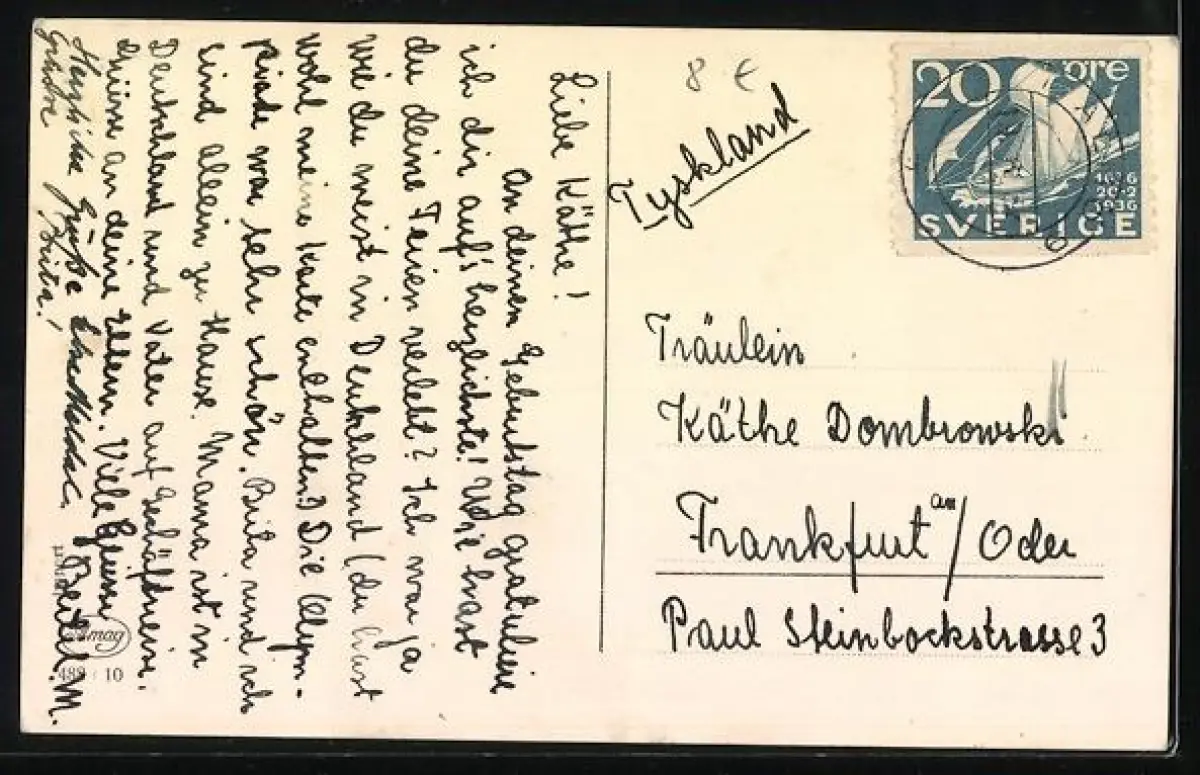 Liebe Käthe!
An deinen Geburtstag gratuliere
ich dir auf's herzlichste! Wie hast
du deine Ferien verlebt? Ich war ja
wie du weist in Deutschland (du hast
wohl meine Karte enthalten?) Die Olym-
piade war sehr schön. Brita und ich
sind allein zu Hause. Mama ist in
Deutschland und Vater auf Geschäftsreise.
Grüsse an deine Eltern. Viele Grüsse
Bertil. M.
Herzliche Grüße
Brita!
8 €
Tyskland
20 öre
1636
20-2
1936
SVERIGE
Fräulein
Käthe Dombrowski
Frankfurt am/Oder
Paul Steinbockstrasse 3
Amag
488 / 10